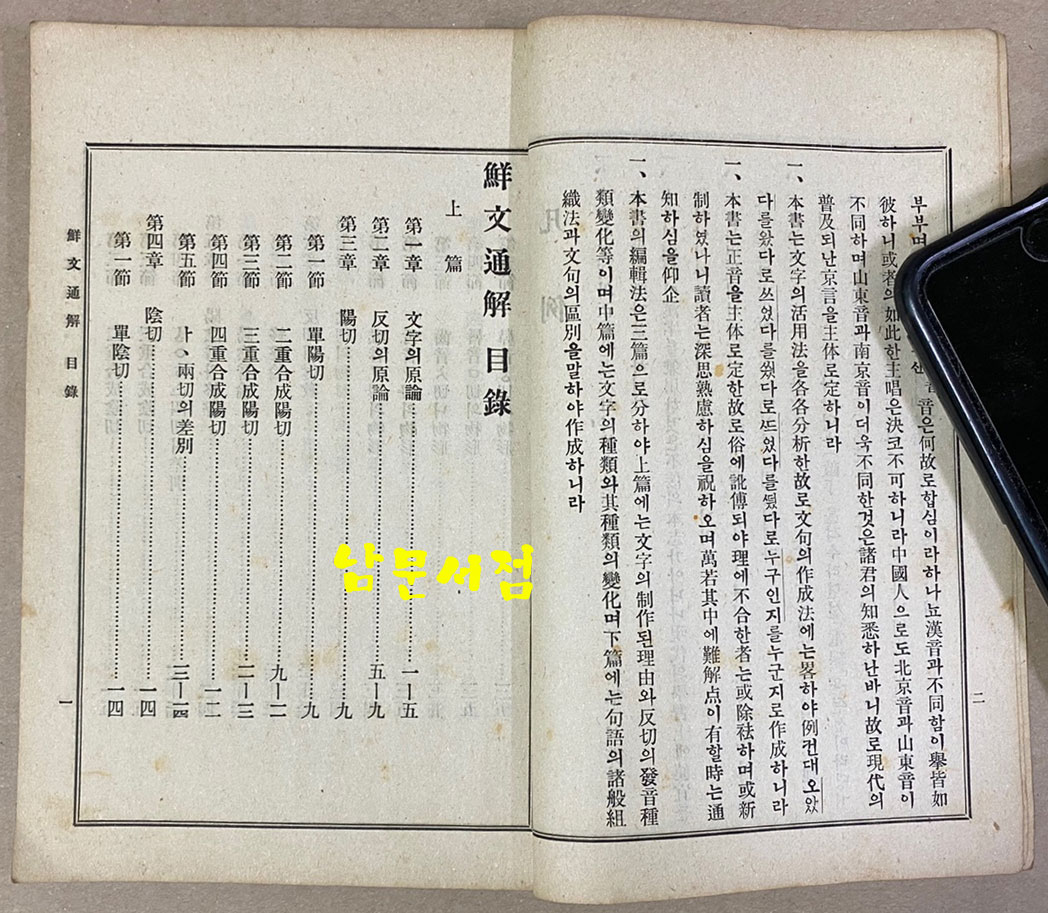 부부며 音은何故로합심이라하나뇨漢音과不同함이擧皆如
彼하니或者의如此한主唱은決코不可하니라中國人으로도北京音과山東音이
不同하며山東音과南京音이더욱不同한것은諸君의知悉하난바니故로現代의
普及되난京言을主体로定하니라
一、本書는文字의活用法을各各分析한故로文句의作成法에는畧하야例컨대오았
다를왔다로쓰엇다를썻다로쓰엇다를 다로누구인지를누군지로作成하니라
一、本書는正音을主体로定한故로俗에訛傳되야理에不合한者는或除祛하며或新
制하였나니讀者는深思熟慮하심을祝하오며萬若其中에難解点이有할時는通
知하심을仰企
一、本書의編輯法은三篇으로分하야上篇에는文字의制作된理由와反切의發音種
類變化等이며中篇에는文字의種類와其種類의變化며下篇에는句語의諸般組
織法과文句의區別을말하야作成하니라
二
鮮文通解目錄
上篇
第一章 文字의原論…………一—五
第二章 反切의原論…………五—九
第三章 陽切…………九
第一節 單陽切…………九
第二節 二重合成陽切…………九—一一
第三節 三重合成陽切…………一一—一三
第四節 四重合成陽切…………一三
第五節 ㅏ、兩切의差別…………一三—一四
第四章 陰切…………一四
第一節 單陰切…………一四
鮮文通解 目錄
一
남문서점